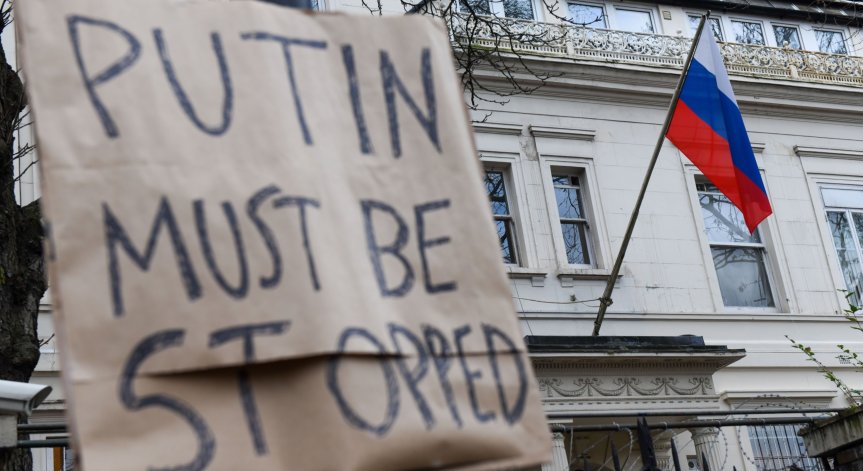 PUTIN
MUST BE
STOPPED